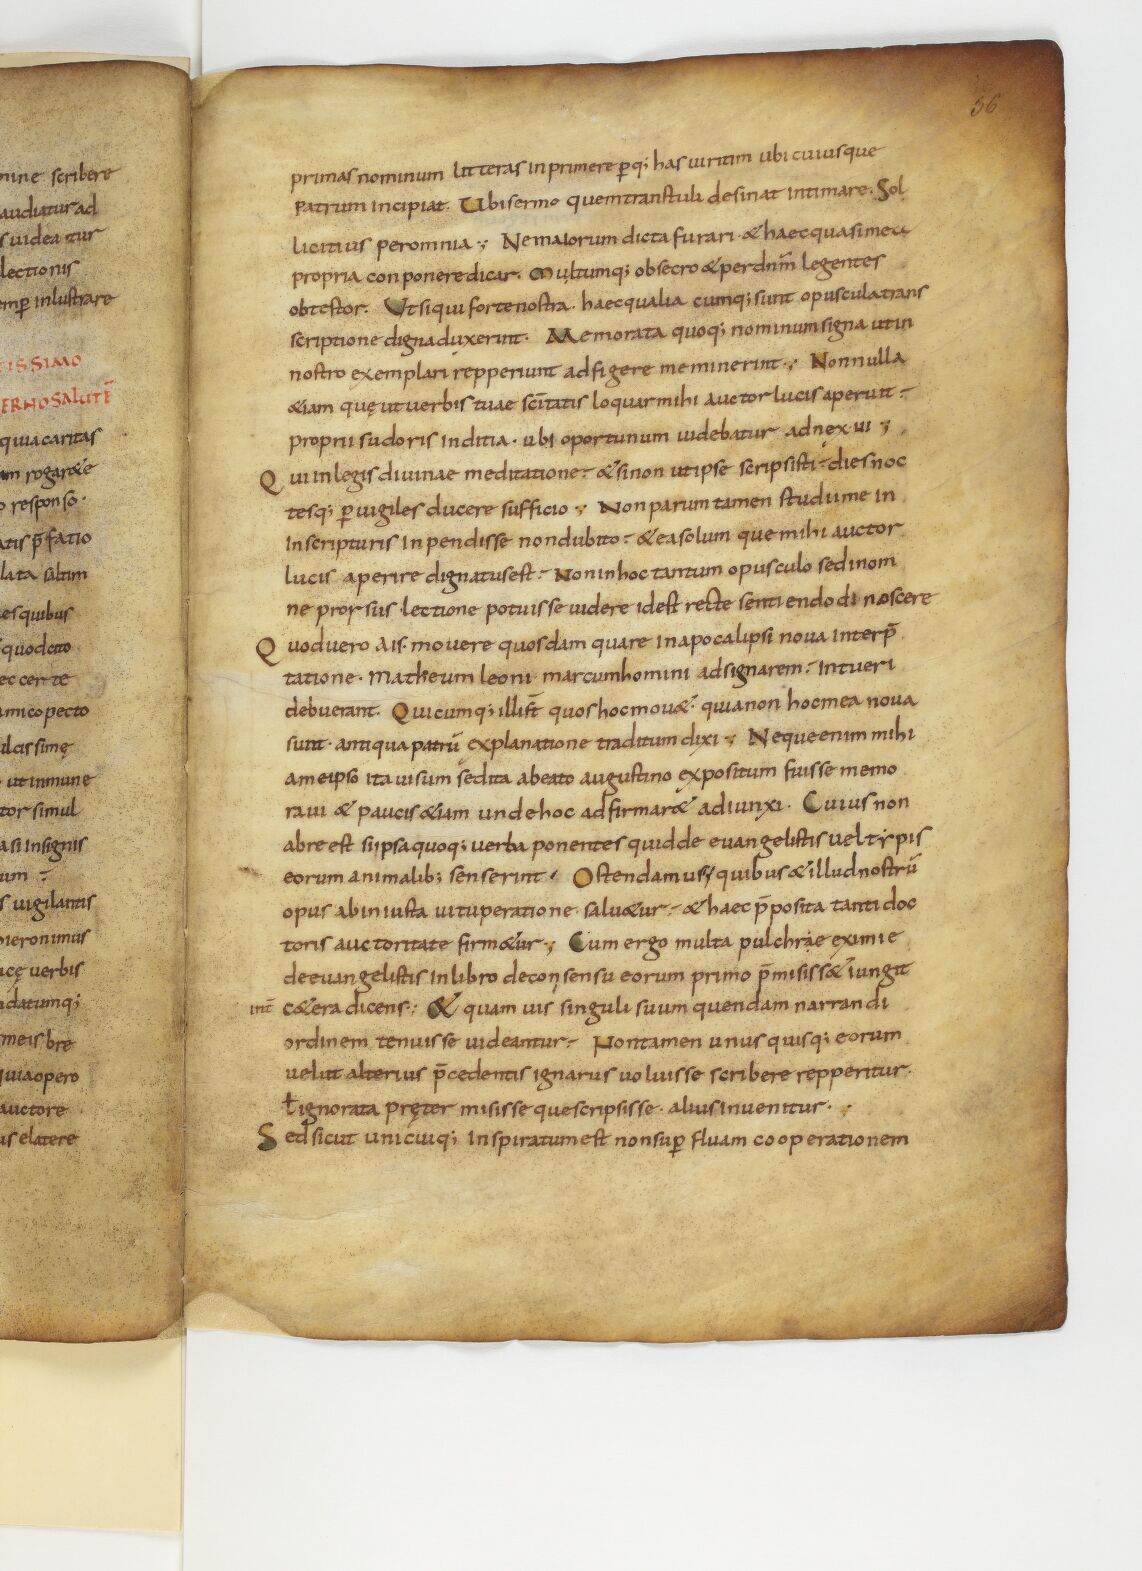 56
mine scribere
audiatur ad
s videatur
lectionis
emp̄ inlustrare
TISSIMO
ERNO SALUTĒ
quia caritas
am rogar&e
o responso·
atis p̄fatio
lata saltim
es quibus
quod cito
ec certe
amico pecto
ulcissimę
ut inmune
tor simul
asi insignis
um :-
s vigilantis
hieronimus
icę verbis
datumq;
meis bre
quia opero
auctore
us elatere
primas nominum litteras inprimere perq; has viritim ubi cuiusque
patrum incipiat. Ubi sermo quem transtuli desinat intimare. Sol
licitius per omnia ·; Ne maiorum dicta furari & haec quasi mea
propria conponere dicar. Multumq; obsecro & per dn̄m legentes
obtestor. Ut siqui forte nostra haec qualia cumq; sunt opuscula trans
scriptione digna duxerint· Memorata quoq; nominum signa ut in
nostro exemplari repperiunt adfigere meminerint ·; Nonnulla
&iam quę ut verbis tuae sc̄itatis loquar mihi auctor lucis aperuit :-
proprii sudoris inditia · ubi oportunum videbatur adnexui ;
Qui in legis divinae meditatione :- & si non ut ipse scripsisti :- dies noc
tesq; pervigiles ducere sufficio ·; Non parum tamen studii me in
in scripturis inpendisse non dubito :- & ea solum que mihi auctor
lucis aperire dignatus est :- Non in hoc tantum opusculo sed in om
ne prorsus lectione potuisse videre id est recte sentiendo dinoscere
Quod vero ais· movere quosdam quare in apocalipsi nova interp̄
tatione · Matheum leoni· marcum homini adsignarem :· Intueri
debuerant. Quicumq; illi s̄t quos hoc mov& · quia non hoc mea nova
sunt· antiqua patrū explanatione traditum dixi ·; Neque enim mihi
a me ipso ita visum sed ita a beato augustino expositum fuisse memo
ravi & paucis &iam unde hoc adfirmar& adiunxi · Cuius non
ab re est si ipsa quoq; verba ponentes quid de evangelistis vel typis
eorum animalib; senserint · Ostendamus, quibus & illud nostrū
opus ab iniusta vituperatione salv&ur :- & haec p̄posita tanti doc
toris auctoritate firm&ur ·; Cum ergo multa pulchrae eximie
de evangelistis in libro de consensu eorum primo p̄misiss& iungit
int̄ c&era dicens :· & quamvis singuli suum quendam narrandi
ordinem tenuisse videantur :- Non tamen unus quisq; eorum
velut alterius p̄cedentis ignarus voluisse scribere repperitur·
ł ignorata pręter misisse que scripsisse · alius invenitur· ·
Sed sicut unicuiq; inspiratum est non sup̄ fluam cooperationem